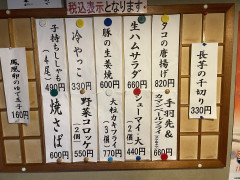 税込表示となります。
長芋の千切り
330円
タコの唐揚げ
820円
手羽先&
カマンベールフライ
660円
生ハムサラダ
660円
シューマイ(大)
(2個)
440円
豚の生姜焼
600円
大粒カキフライ
(3個)
770円
冷やっこ
330円
野菜コロッケ
(2個)
550円
子持ちししゃも
(4尾)
490円
焼きそば
600円
鳳凰卵のゆで玉子
160円